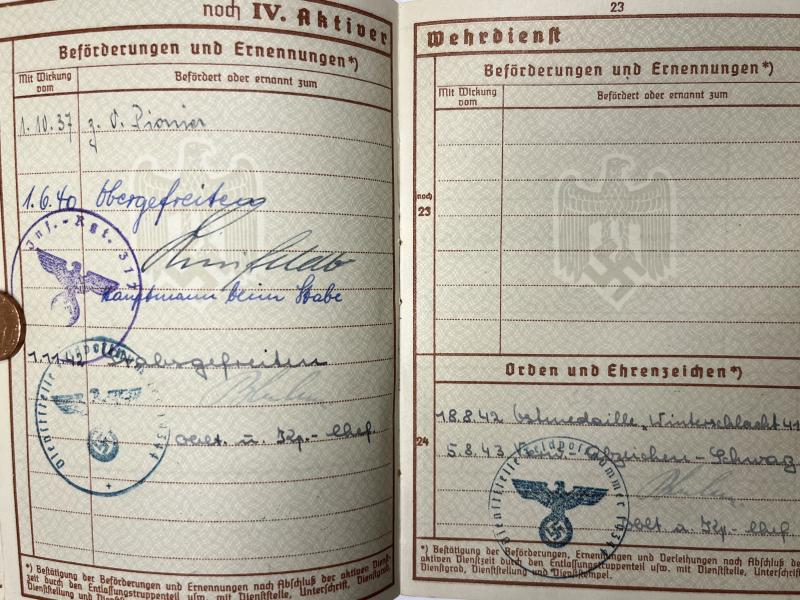 noch IV. Aktiver
Beförderungen und Ernennungen*)
Mit Wirkung vom
Befördert oder ernannt zum
1.10.37 z. Pionier
1.6.40 Obergefreiten
Inf.-Rgt. 317
Hauptmann beim Stabe
1.11.42 Stabsgefreiten
Dienststelle Feldpostnummer
Oblt. u. Kp.-Chef
*) Bestätigung der Beförderungen und Ernennungen nach Abschluß der aktiven Dienst-
zeit durch den Entlassungstruppenteil usw. mit Dienststelle, Unterschrift, Dienstgrad,
Dienststellung und Dienststempel.
23
Wehrdienst
Beförderungen und Ernennungen*)
Mit Wirkung vom
Befördert oder ernannt zum
noch
23
Orden und Ehrenzeichen*)
24
18.8.42 Ostmedaille „Winterschlacht 41
5.8.43 Verw.-Abzeichen-Schwarz
Dienststelle Feldpostnummer
Oblt u Kp.-Chef
*) Bestätigung der Beförderungen, Ernennungen und Verleihungen nach Abschluß der
aktiven Dienstzeit durch den Entlassungstruppenteil usw. mit Dienststelle, Unterschrift,
Dienstgrad, Dienststellung und Dienststempel.